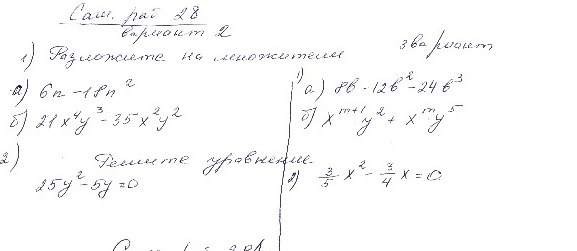 Сам. раб 28
вариант 2
1) Разложите на множители
а) 6n - 18n²
б) 21x⁴y³ - 35x²y²
2) Решите уравнение
25y² - 5y = 0
3 вариант
1) а) 8b - 12b² - 24b³
б) x^{m+1}y² + x^m y⁵
2) 3/5 x² - 3/4 x = 0